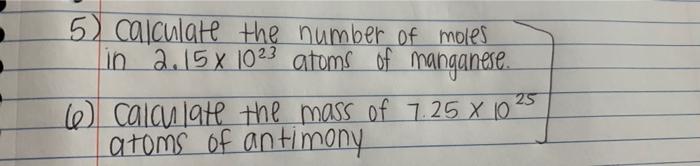 5) Calculate the number of moles
in 2.15 x 10²³ atoms of manganese.
6) Calculate the mass of 7.25 x 10²⁵
atoms of antimony